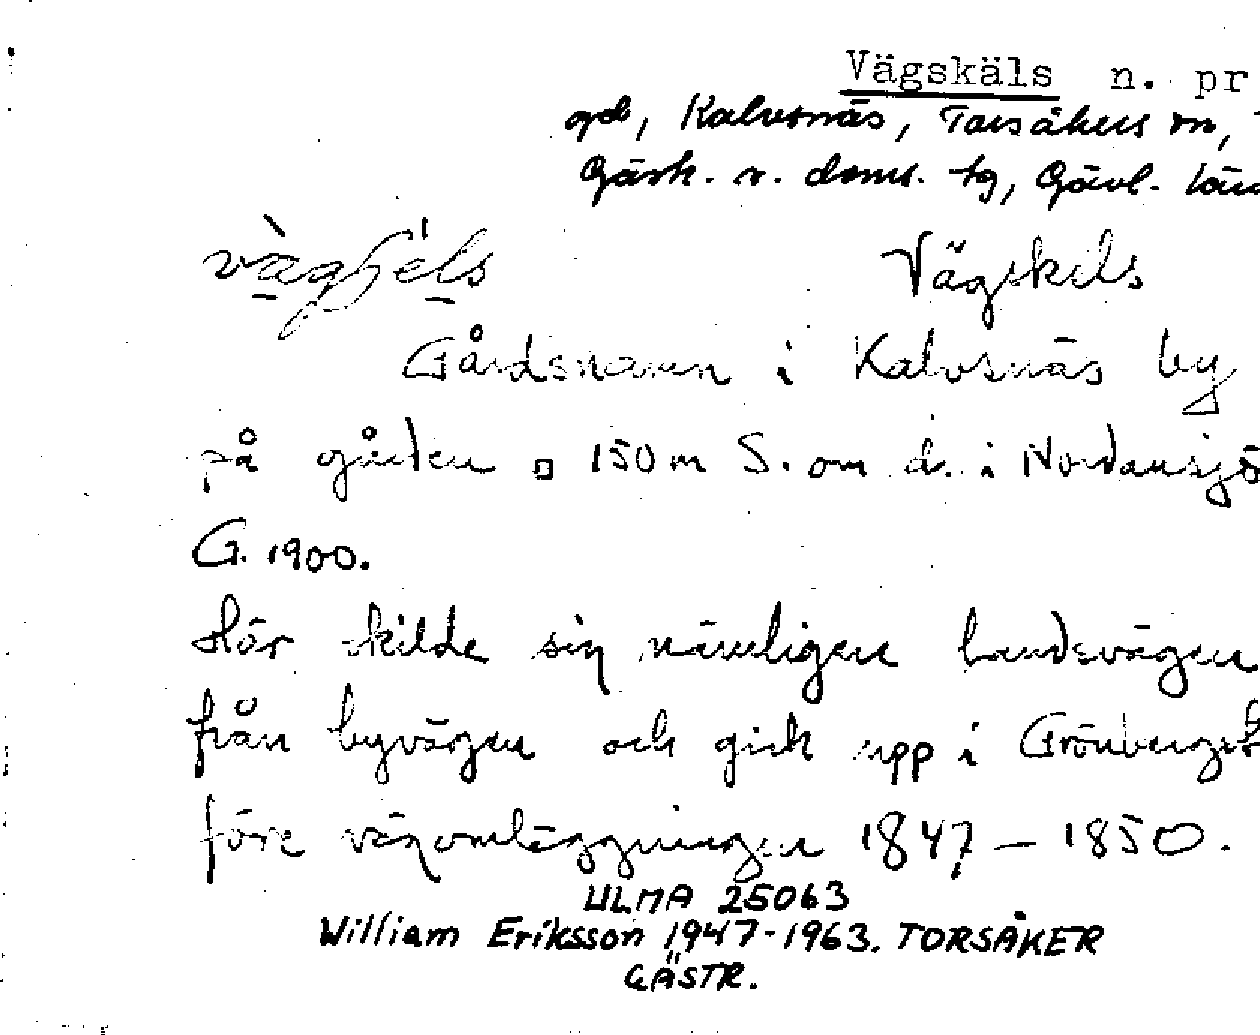 Vägskäls n. pr
gd, Kalvsnäs, Torsåkers sn,
Gästr. v. doms. tg, Gävl. län
Vägskels
Gårdsnamn i Kalvsnäs by
på gården □ 150 m S. om d. i Nordansjö
G. 1900.
Här skilde sig nämligen landsvägen
från byvägen och gick upp i Grönberget
före vägomläggningen 1847 – 1850.
ULMA 25063
William Eriksson 1947-1963. TORSÅKER
GÄSTR.